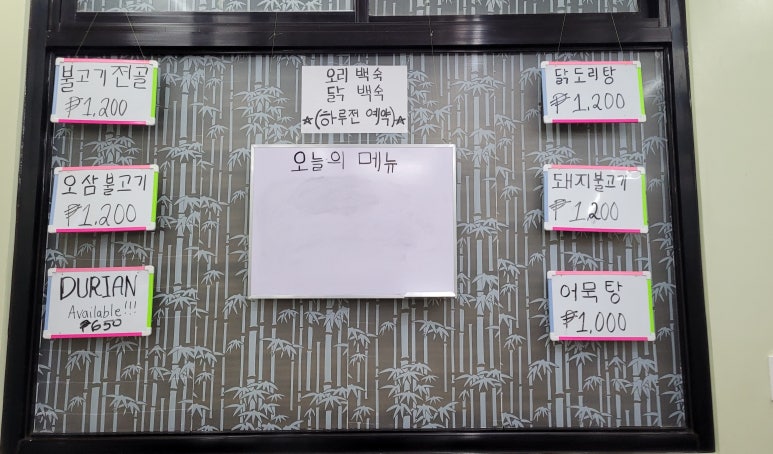 불고기전골
₱1,200
오삼불고기
₱1,200
DURIAN
Available!!!
₱650
오리 백숙
닭 백숙
★(하루전 예약)★
오늘의 메뉴
닭도리탕
₱1,200
돼지불고기
₱1,200
어묵탕
₱1,000